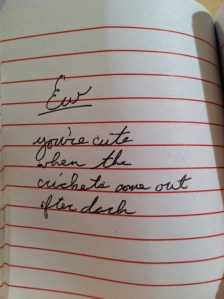 Ew
you're cute
when the
crickets come out
after dark